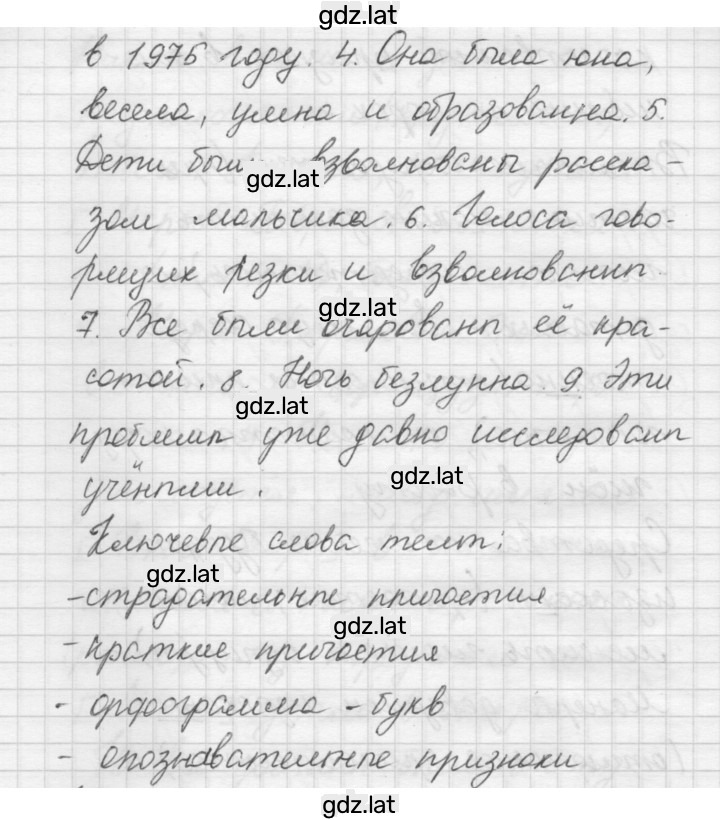 gdz.lat
в 1975 году. 4. Она была юна,
весела, умна и образованна. 5.
Дети были взволнованы расска-
gdz.lat
зом мальчика. 6. Голоса гово-
рящих резки и взволнованны.
gdz.lat
7. Все были очарованы её кра-
сотой. 8. Ночь безлунна. 9. Эти
gdz.lat
проблемы уже давно исследованы
gdz.lat
учёными.
Ключевые слова темы:
gdz.lat
-страдательные причастия
gdz.lat
- краткие причастия
- орфограмма - букв
- опознавательные признаки
gdz.lat